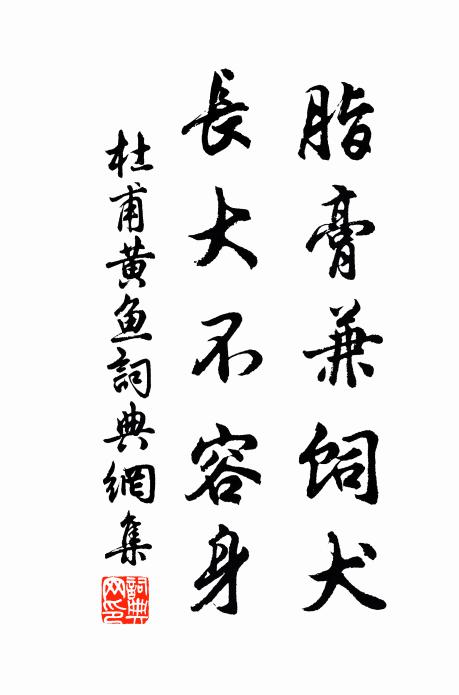 脂膏兼飼犬
長大不容身
杜甫黄魚詞典網集
詞典网印